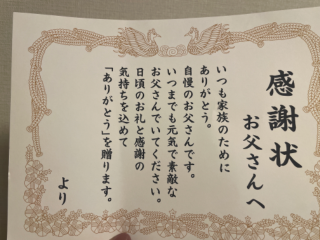 感謝状
お父さんへ
いつも家族のために
ありがとう。
自慢のお父さんです。
いつまでも元気で素敵な
お父さんでいてください。
日頃のお礼と感謝の
気持ちを込めて
「ありがとう」を贈ります。
より